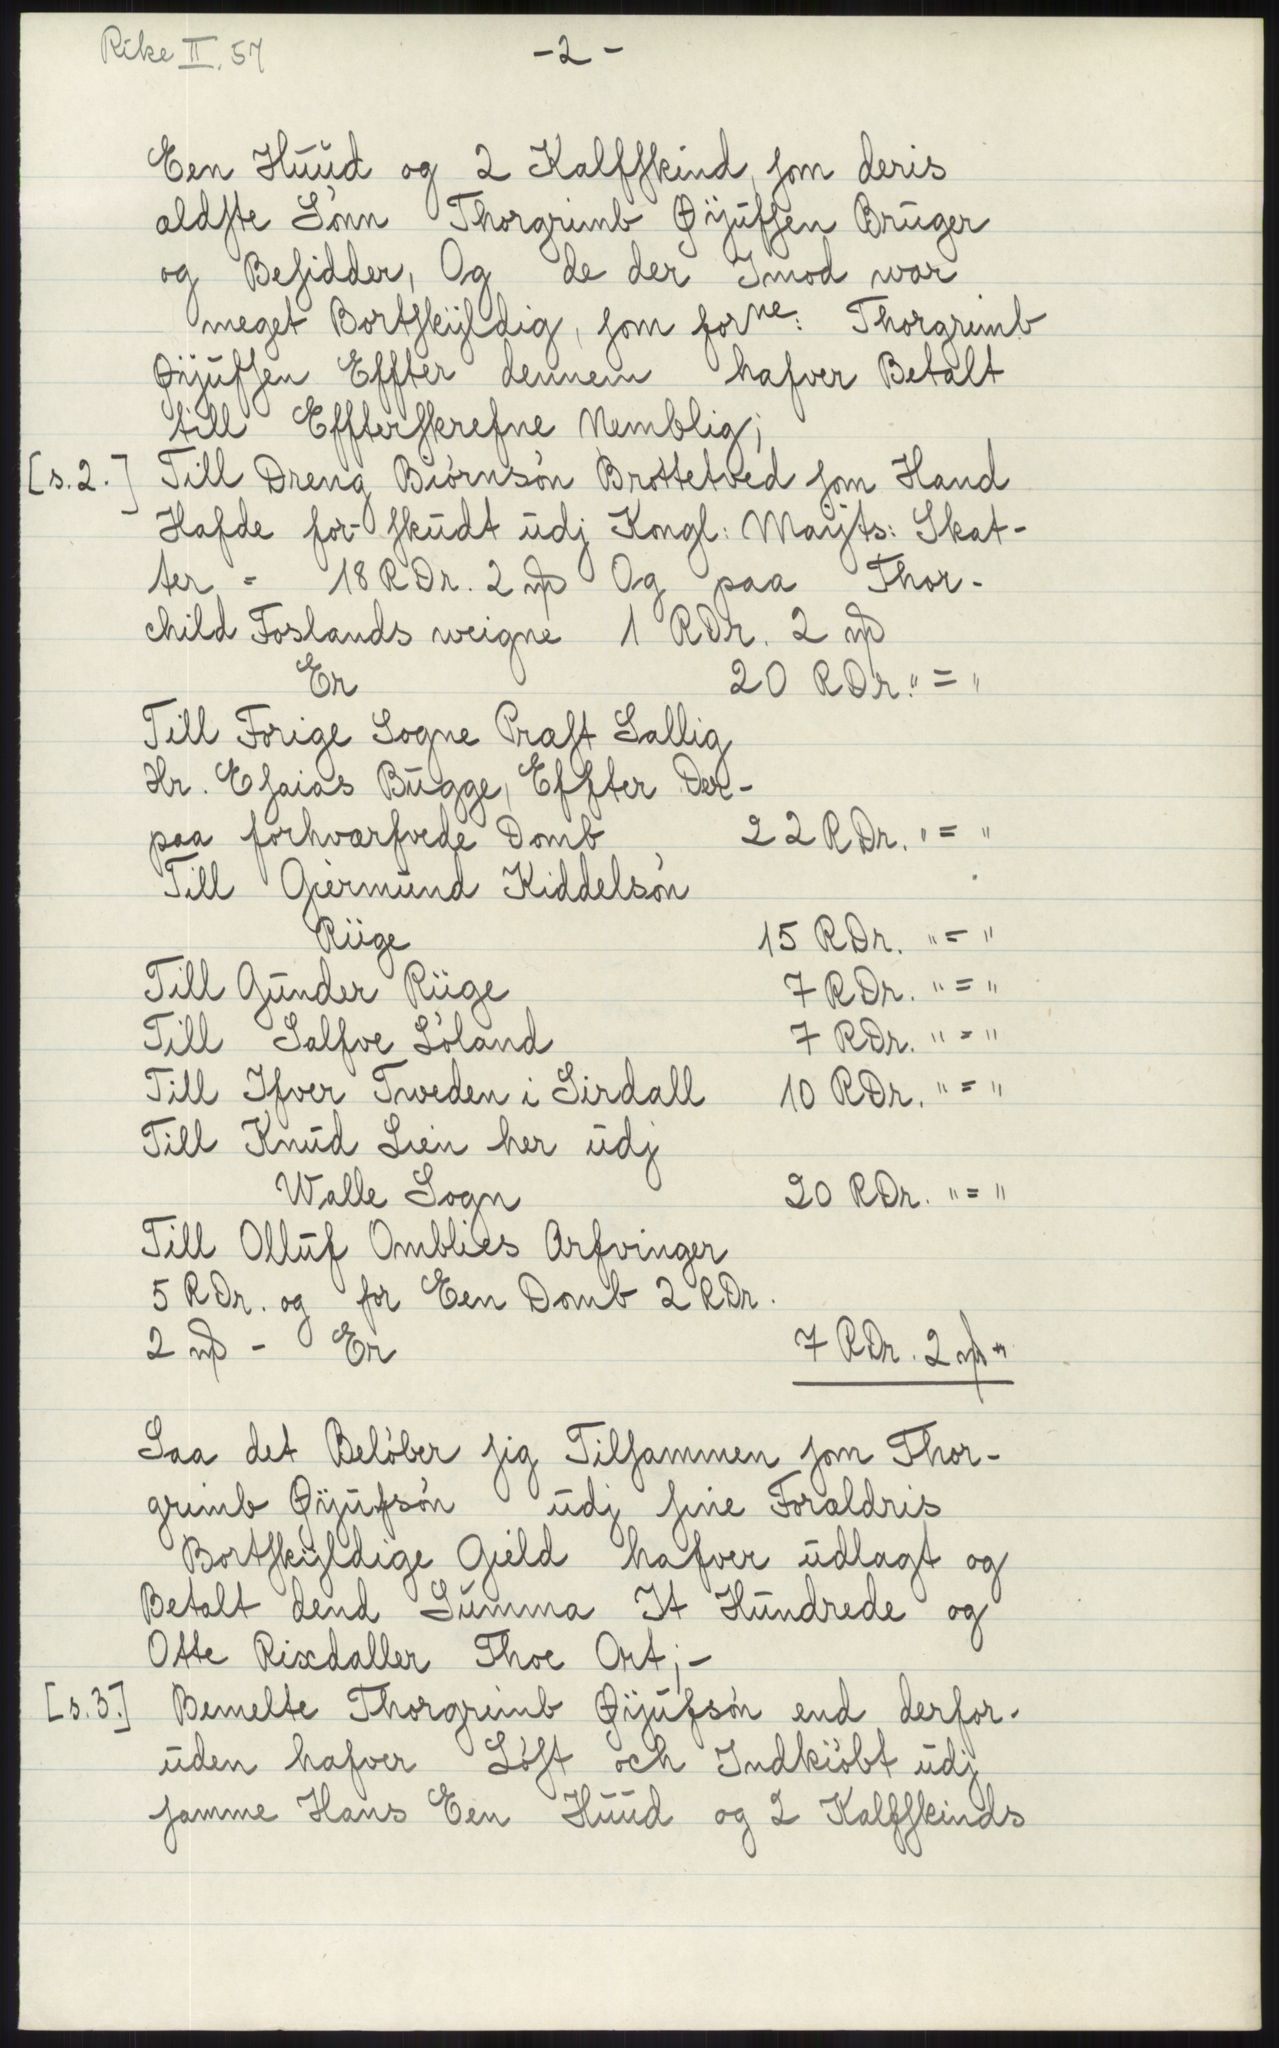 Rike II, 57
- 2 -
Een Huud og 2 Kalfskind, som deris
ældste Sønn Thorgrimb Øÿufsen Bruger
og Besidder, Og de der Imod war
meget Bortskÿldig, som forne: Thorgrimb
Øÿufsen Effter dennem hafver Betalt
till Effterskrefne Nemblig;
[s.2.] Till Dreng Biørnsøn Brottetved som Hand
Hafde for- skudt udj Kongl: Maÿts: Skat-
ter = 18 RDr. 2 mþ Og paa Thor-
child Foslands weigne 1 RDr. 2 mþ
Er 20 RDr. " = "
Till Forige Sogne Præst Sallig
Hr. Esaias Bugge, Effter Der-
paa forhværfvede Domb 22 RDr. " = "
Till Giermund Kiddelsøn
Riige 15 RDr. " = "
Till Gunder Riige 7 RDr. " = "
Till Salfve Søland 7 RDr. " = "
Till Ifver Tweden i Sirdall 10 RDr. " = "
Till Knud Lien her udj
Walle Sogn 20 RDr. " = "
Till Olluf Omblies Arfvinger
5 RDr. og for Een Domb 2 RDr.
2 mþ - Er 7 RDr. 2 mþ "
Saa det Beløber sig Tilsammen som Thor-
grimb Øÿufsøn udj sine Forældris
Bortskÿldige Gield hafver udlagt og
Betalt dend Summa It Hundrede og
Otte Rixdaller Thoe Ort; -
[s.3.] Bemelte Thorgrimb Øÿufsøn end derfor-
uden hafver Løst och Indkiøbt udj
samme Hans Een Huud og 2 Kalfskinds